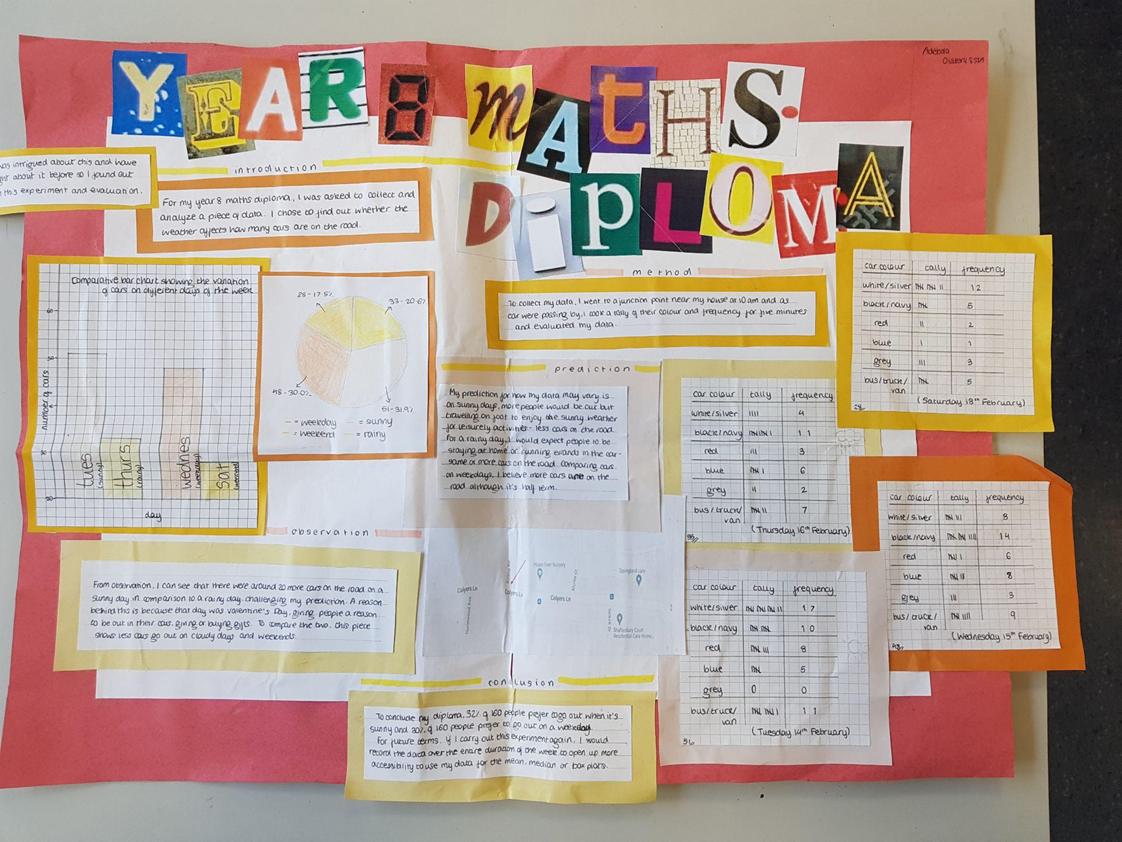 YEAR 8 MATHS
DIPLOMA
Adebola
was intrigued about this and have
about it before so I found out
this experiment and evaluation.
introduction
For my year 8 maths diploma, I was asked to collect and
analyze a piece of data. I chose to find out whether the
weather affects how many cars are on the road.
Comparative bar chart showing the variation
of cars on different days of the week
number of cars
tues
(sunny)
thurs
(rainy)
wednes
(weekday)
sat
(weekend)
day
28-17.5%
33-20.6%
48-30.0%
51-31.9%
— = weekday — = sunny
— = weekend — = rainy
method
To collect my data, I went to a junction point near my house at 10am and as
car were passing by, I took a tally of their colour and frequency for five minutes
and evaluated my data.
prediction
My prediction for how my data may vary is
on sunny days, more people would be out but
travelling on foot to enjoy the sunny weather
for leisurely activities - less cars on the road.
For a rainy day, I would expect people to be
staying at home or running errands in the car-
same or more cars on the road. Comparing cars
on weekdays, I believe more cars are on the
road although it's half term.
car colour tally frequency
white/silver 𝍸 𝍸 || 12
black/navy 𝍸 5
red || 2
blue | 1
grey ||| 3
bus/truck/ 𝍸 5
van
(Saturday 18th February)
28
car colour tally frequency
white/silver |||| 4
black/navy 𝍸 𝍸 | 11
red ||| 3
blue 𝍸 | 6
grey || 2
bus/truck/ 𝍸 || 7
van
(Thursday 16th February)
33
car colour tally frequency
white/silver 𝍸 ||| 8
black/navy 𝍸 𝍸 |||| 14
red 𝍸 | 6
blue 𝍸 ||| 8
grey ||| 3
bus/truck/ 𝍸 |||| 9
van
(Wednesday 15th February)
48
car colour tally frequency
white/silver 𝍸 𝍸 𝍸 || 17
black/navy 𝍸 𝍸 10
red 𝍸 ||| 8
blue 𝍸 5
grey 0 0
bus/truck/ 𝍸 𝍸 | 11
van
(Tuesday 14th February)
observation
From observation, I can see that there were around 20 more cars on the road on a
sunny day in comparison to a rainy day, challenging my prediction. A reason
behind this is because that day was Valentine's Day, giving people a reason
to be out in their cars, giving or buying gifts. To compare the two, this piece
shows less cars go out on cloudy days and weekends.
Calyers Ln
Calyers Ln
Calyers Ln
Springfield care
Shaftesbury Court
Residential Care Home
conclusion
To conclude my diploma, 32% of 160 people prefer to go out when it's
sunny and 30% of 160 people prefer to go out on a weekday.
For future terms, if I carry out this experiment again, I would
record the data over the entire duration of the week to open up more
accessibility to use my data for the mean, median or box plots.